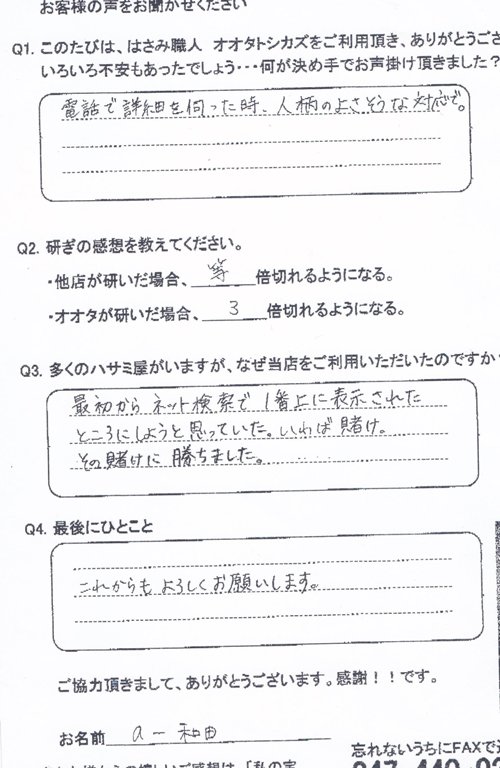 お客様の声をお聞かせください
Q1. このたびは、はさみ職人 オオタトシカズをご利用頂き、ありがとうござ
いろいろ不安もあったでしょう・・・何が決め手でお声掛け頂きました?
電話で詳細を伺った時、人柄のよさそうな対応で。
Q2. 研ぎの感想を教えてください。
・他店が研いだ場合、 等 倍切れるようになる。
・オオタが研いだ場合、 3 倍切れるようになる。
Q3. 多くのハサミ屋がいますが、なぜ当店をご利用いただいたのですか
最初から ネット検索で 1番上に表示された
ところにしようと思っていた。いわば賭け。
その賭けに 勝ちました。
Q4. 最後にひとこと
これからも よろしくお願いします。
ご協力頂きまして、ありがとうございます。感謝!!です。
お名前 a-和田
忘れないうちにFAXで